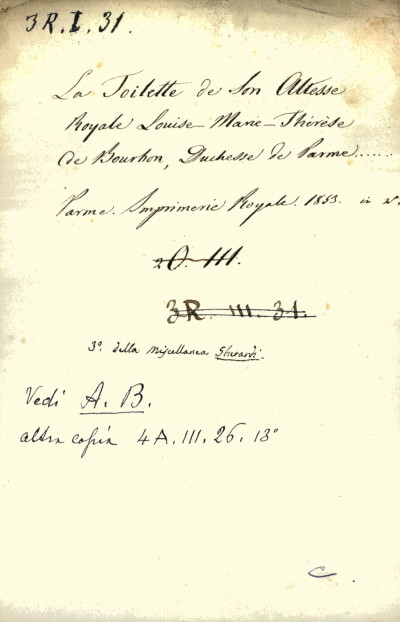 3R.I.31.
La Toilette de Son Altesse
Royale Louise-Marie-Thérèse
de Bourbon, Duchesse de Parme......
Parme. Imprimerie Royale. 1853. in
20. III.
3R. III. 31.
3º della Miscellanea Gherardi.
Vedi A. B.
altra copia 4A.III.26.13º
C